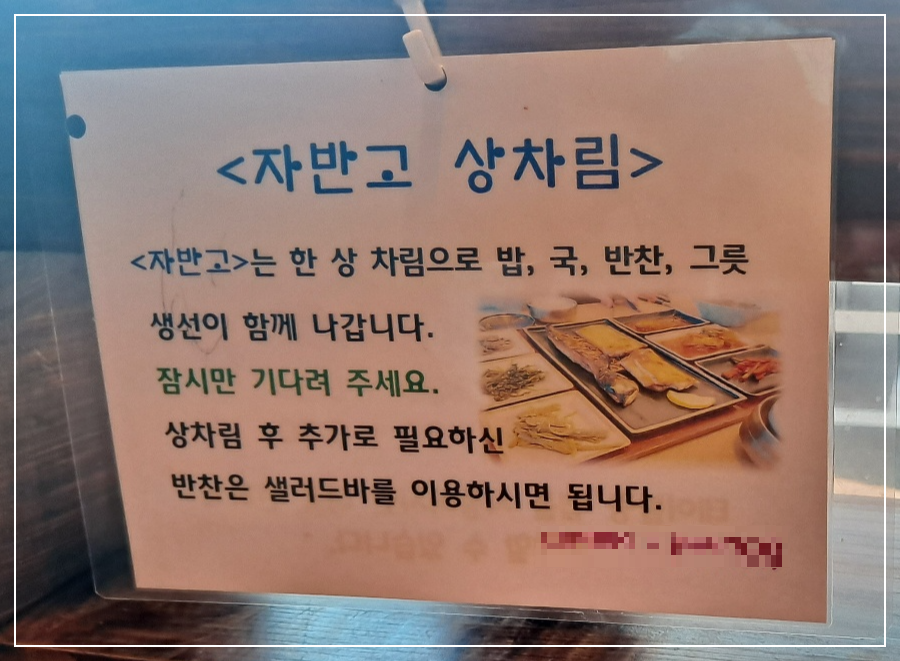 <자반고 상차림>
<자반고>는 한 상 차림으로 밥, 국, 반찬, 그릇
생선이 함께 나갑니다.
잠시만 기다려 주세요.
상차림 후 추가로 필요하신
반찬은 샐러드바를 이용하시면 됩니다.